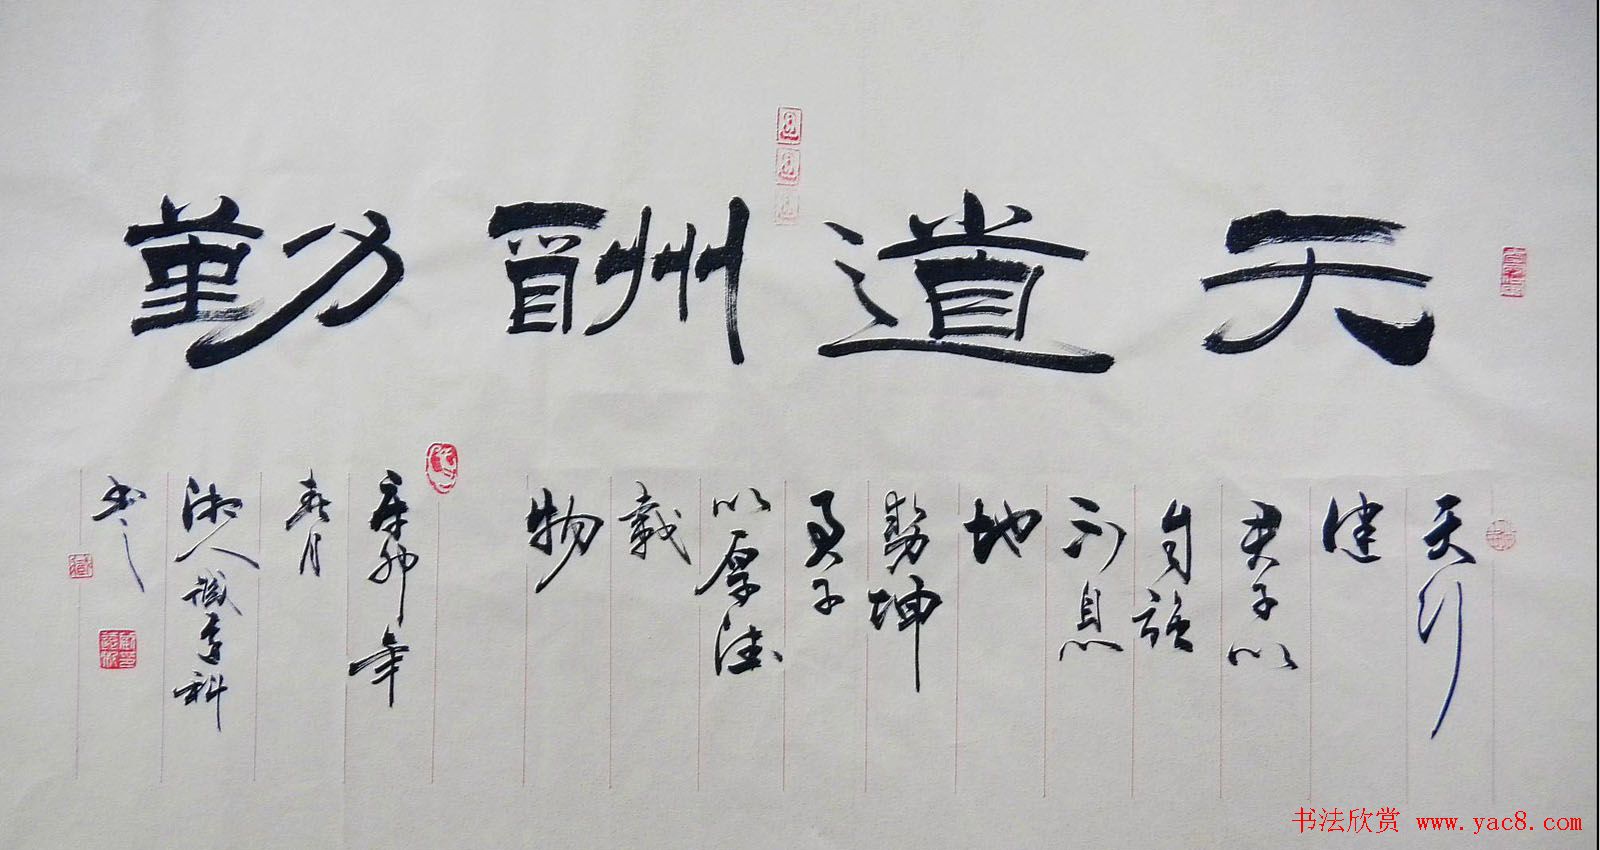 天道酬勤
天行
健
君子以
自强
不息
地
勢坤
君子
以厚德
載
物
辛卯年
春月
湘人科
書之
书法欣赏 www.yac8.com